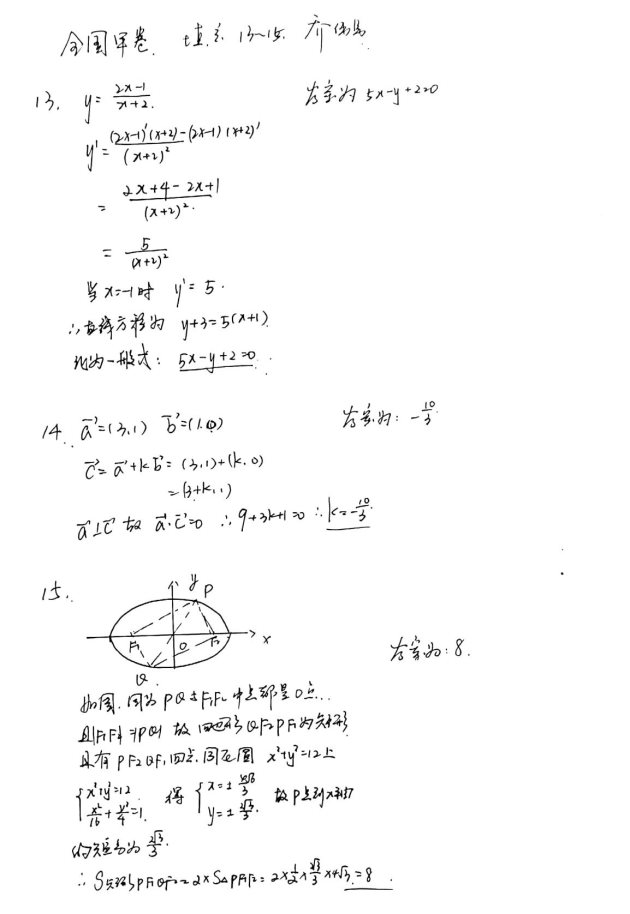 全国甲卷 填空 13~15
13. y = \frac{2x-1}{x+2} 答案为 5x-y+2=0
y' = \frac{(2x-1)'(x+2)-(2x-1)(x+2)'}{(x+2)^2}
= \frac{2x+4-2x+1}{(x+2)^2}.
= \frac{5}{(x+2)^2}
当 x=-1时 y'=5.
∴直线方程为 y+3=5(x+1)
化为一般式: 5x-y+2=0
14. \vec{a}=(3,1) \vec{b}=(1,0) 答案为: -\frac{10}{3}
\vec{c}=\vec{a}+k\vec{b}=(3,1)+(k,0)
=(3+k,1)
\vec{a}⊥\vec{c} 故 \vec{a}·\vec{c}=0 ∴9+3k+1=0 ∴k=-\frac{10}{3}
15. 答案为: 8.
y
P
F₁ O F₂ x
Q
如图. 因为 PQ与F₁F₂ 中点都是O点.
且|F₁F₂|=|PQ| 故 四边形 QF₂PF₁为矩形
且有 PF₂QF₁四点同在圆 x²+y²=12上
{x²+y²=12 \frac{x²}{16}+\frac{y²}{4}=1. 得 {x=±\frac{4\sqrt{6}}{3} y=±\frac{2\sqrt{3}}{3}. 故P点到x轴
的距离为 \frac{2\sqrt{3}}{3}.
∴S矩形PF₁QF₂=2×S△PF₁F₂=2×\frac{1}{2}×\frac{2\sqrt{3}}{3}×4\sqrt{3}=8